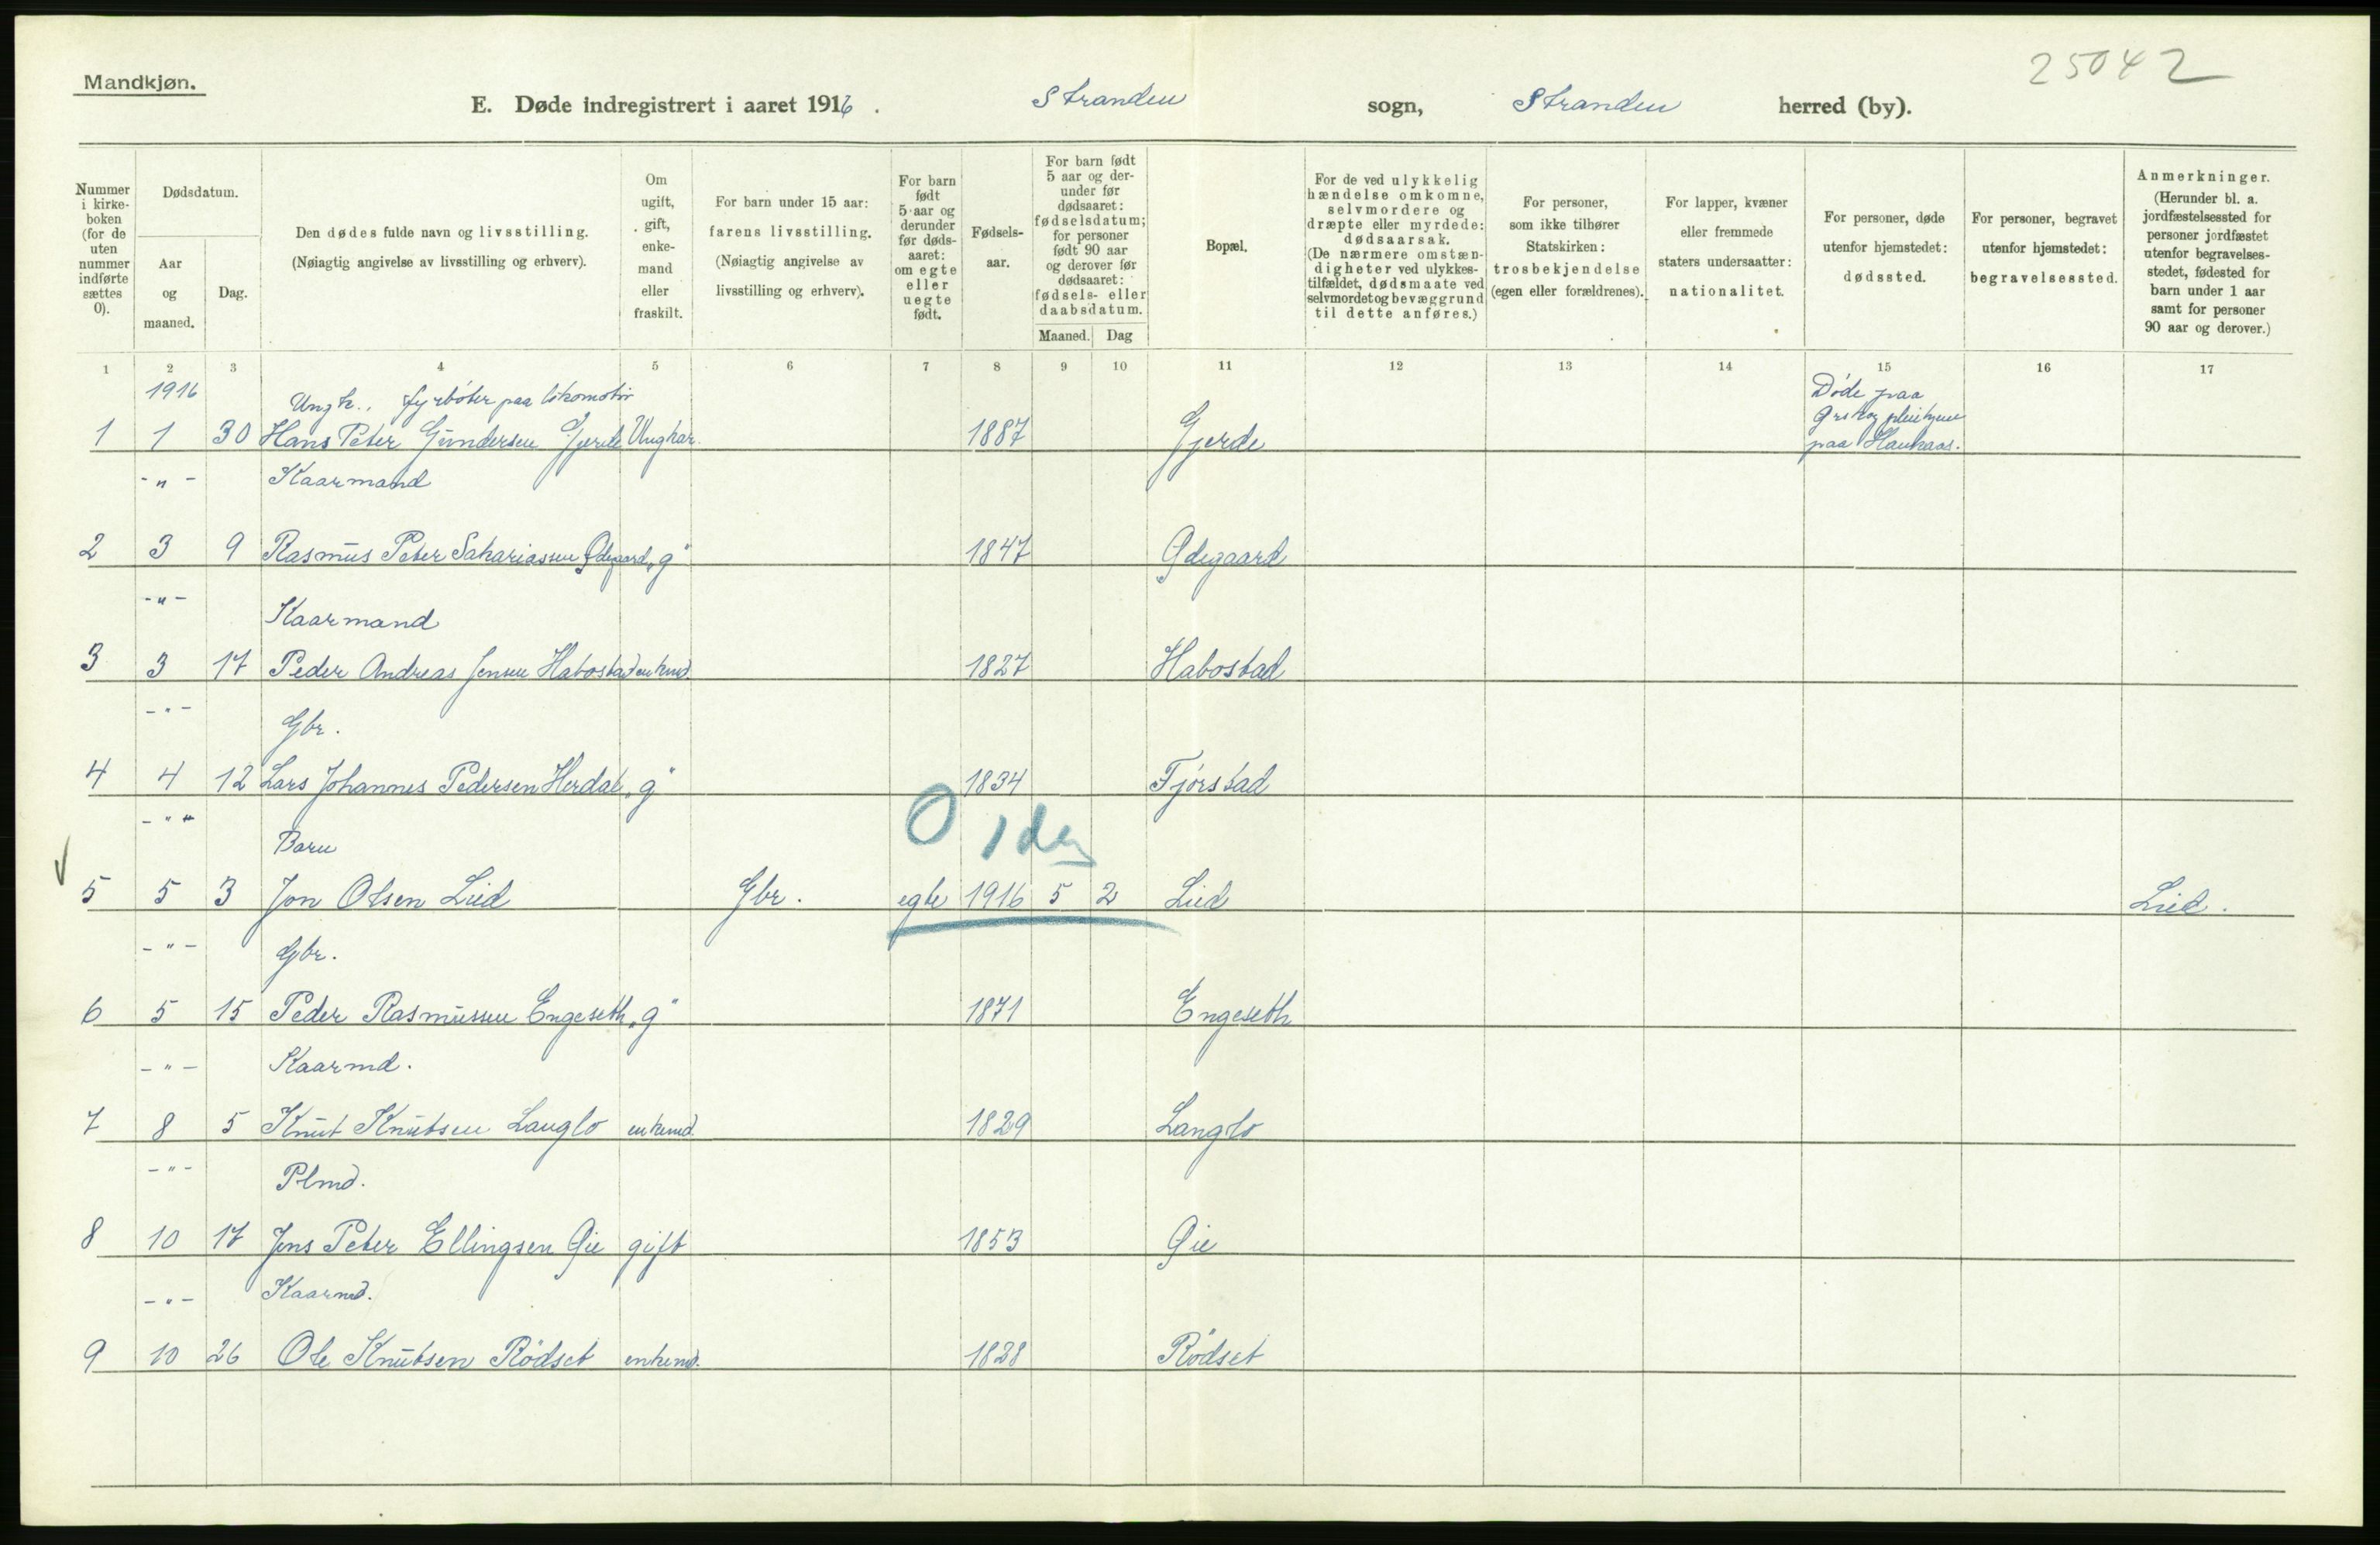 25042
Mandkjøn.
E. Døde indregistrert i aaret 1916. Stranden sogn, Stranden herred (by).
Nummer i kirke-boken (for de uten nummer indførte sættes 0).
Dødsdatum.
Aar og maaned.
Dag.
Den dødes fulde navn og livsstilling.
(Nøiagtig angivelse av livsstilling og erhverv).
Om ugift, gift, enke-mand eller fraskilt.
For barn under 15 aar: farens livsstilling.
(Nøiagtig angivelse av livsstilling og erhverv).
For barn født 5 aar og derunder før døds-aaret: om egte eller uegte født.
Fødsels-aar.
For barn født 5 aar og der-under før dødsaaret: fødselsdatum; for personer født 90 aar og derover før dødsaaret: fødsels- eller daabsdatum.
Maaned. Dag
Bopæl.
For de ved ulykkelig hændelse omkomne, selvmordere og dræpte eller myrdede: dødsaarsak. (De nærmere omstæn-digheter ved ulykkes-tilfældet, dødsmaate ved selvmordet og bevæggrund til dette anføres.)
For personer, som ikke tilhører Statskirken: trosbekjendelse (egen eller forældrenes).
For lapper, kvæner eller fremmede staters undersaatter: nationalitet.
For personer, døde utenfor hjemstedet: dødssted.
For personer, begravet utenfor hjemstedet: begravelsessted.
Anmerkninger.
(Herunder bl. a. jordfæstelsessted for personer jordfæstet utenfor begravelses-stedet, fødested for barn under 1 aar samt for personer 90 aar og derover.)
1 2 3 4 5 6 7 8 9 10 11 12 13 14 15 16 17
1916 Ungk., fyrbøter paa lokomotiv Døde paa
1 1 30 Hans Peter Gundersen Gjerde Ungkar. 1887 Gjerde Ørskog pleiehjem
paa Haukaas.
-"- Kaarmand
2 3 9 Rasmus Peter Sakariassen Ødegaard "g" 1847 Ødegaard
-"- Kaarmand
3 3 17 Peder Andreas Jensen Habostad enkmd. 1827 Habostad
-"- Gbr.
4 4 12 Lars Johannes Pedersen Herdal "g" 1834 Fjørstad
0 1 dag
-"- Barn
5 5 3 Jon Olsen Lied Gbr. egte 1916 5 2 Lied Lied.
-"- Gbr.
6 5 15 Peder Rasmussen Engeseth "g" 1871 Engeseth
-"- Kaarmd.
7 8 5 Knut Knutsen Langlo enkemd. 1829 Langlo
-"- Plmd.
8 10 17 Jens Peter Ellingsen Øie gift 1853 Øie
-"- Kaarmd.
9 10 26 Ole Knutsen Rødset enkemd. 1828 Rødset